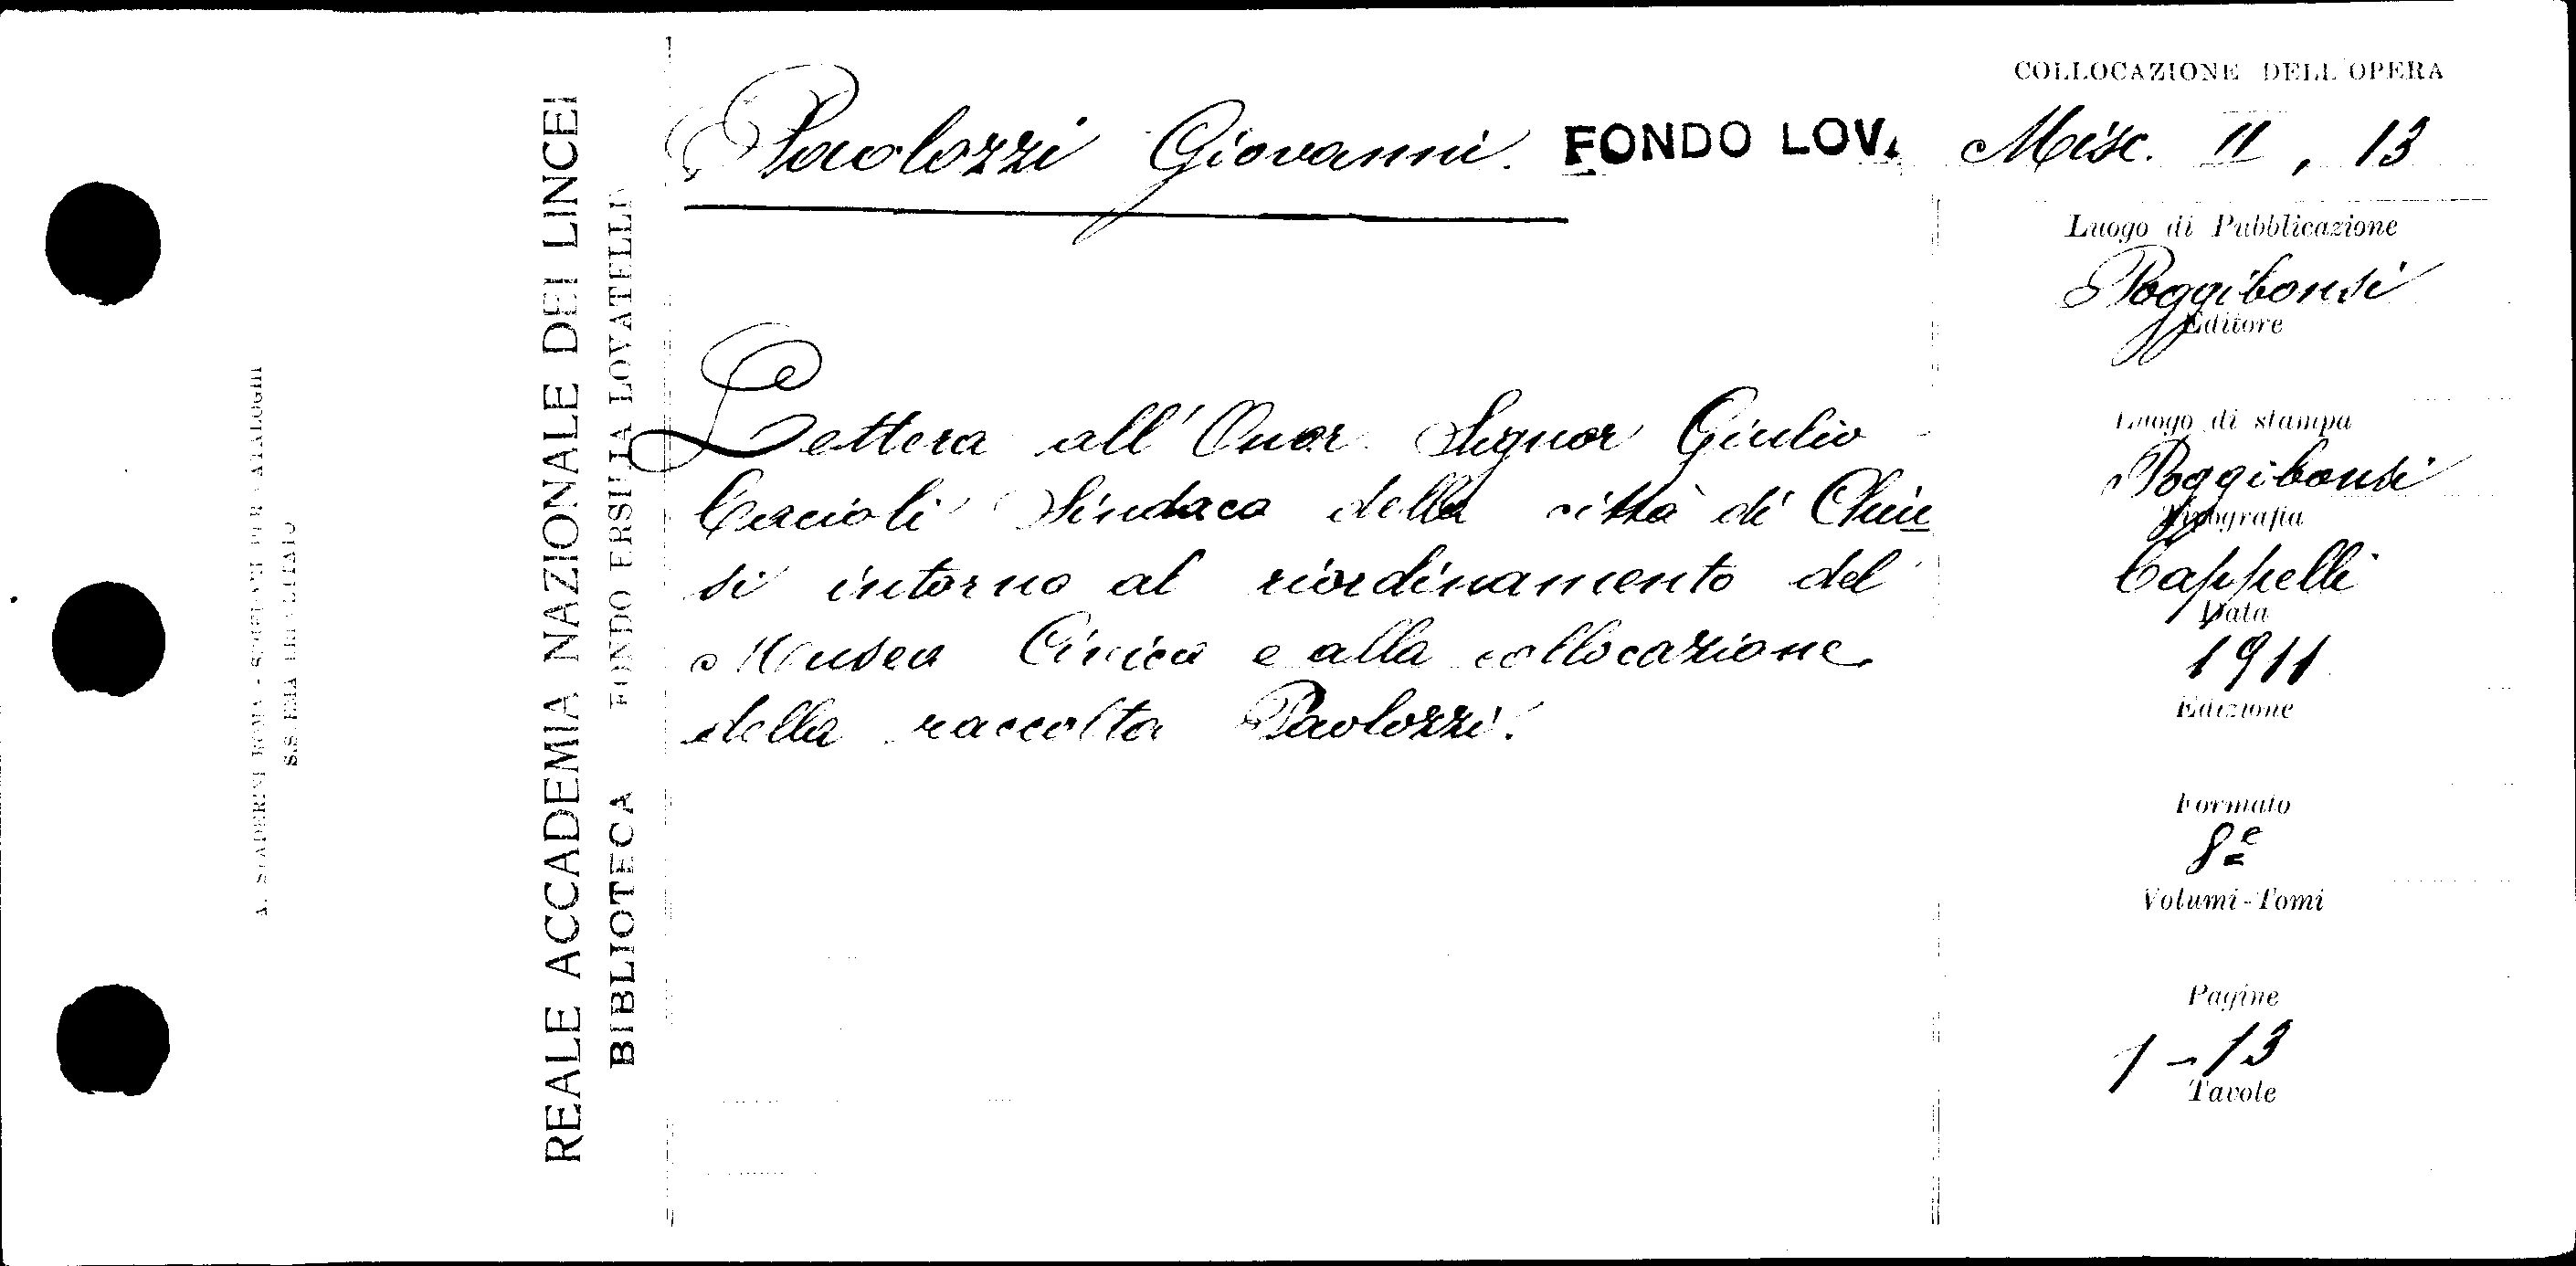 A. STADERINI ROMA - 
REALE ACCADEMIA NAZIONALE DEI LINCEI
BIBLIOTECA FONDO ERSILIA LOVATELLI
Paolozzi Giovanni. FONDO LOV.
Lettera all'Onor. Signor Giulio
Cacioli Sindaco della città di Chiu
si intorno al riordinamento del
Museo Civico e alla collocazione
della raccolta Paolozzi.
COLLOCAZIONE DELL'OPERA
Misc. II, 13
Luogo di Pubblicazione
Poggibonsi
Editore
Luogo di stampa
Poggibonsi
Tipografia
Cappelli
Data
1911
Edizione
Formato
8º
Volumi-Tomi
Pagine
1-13
Tavole